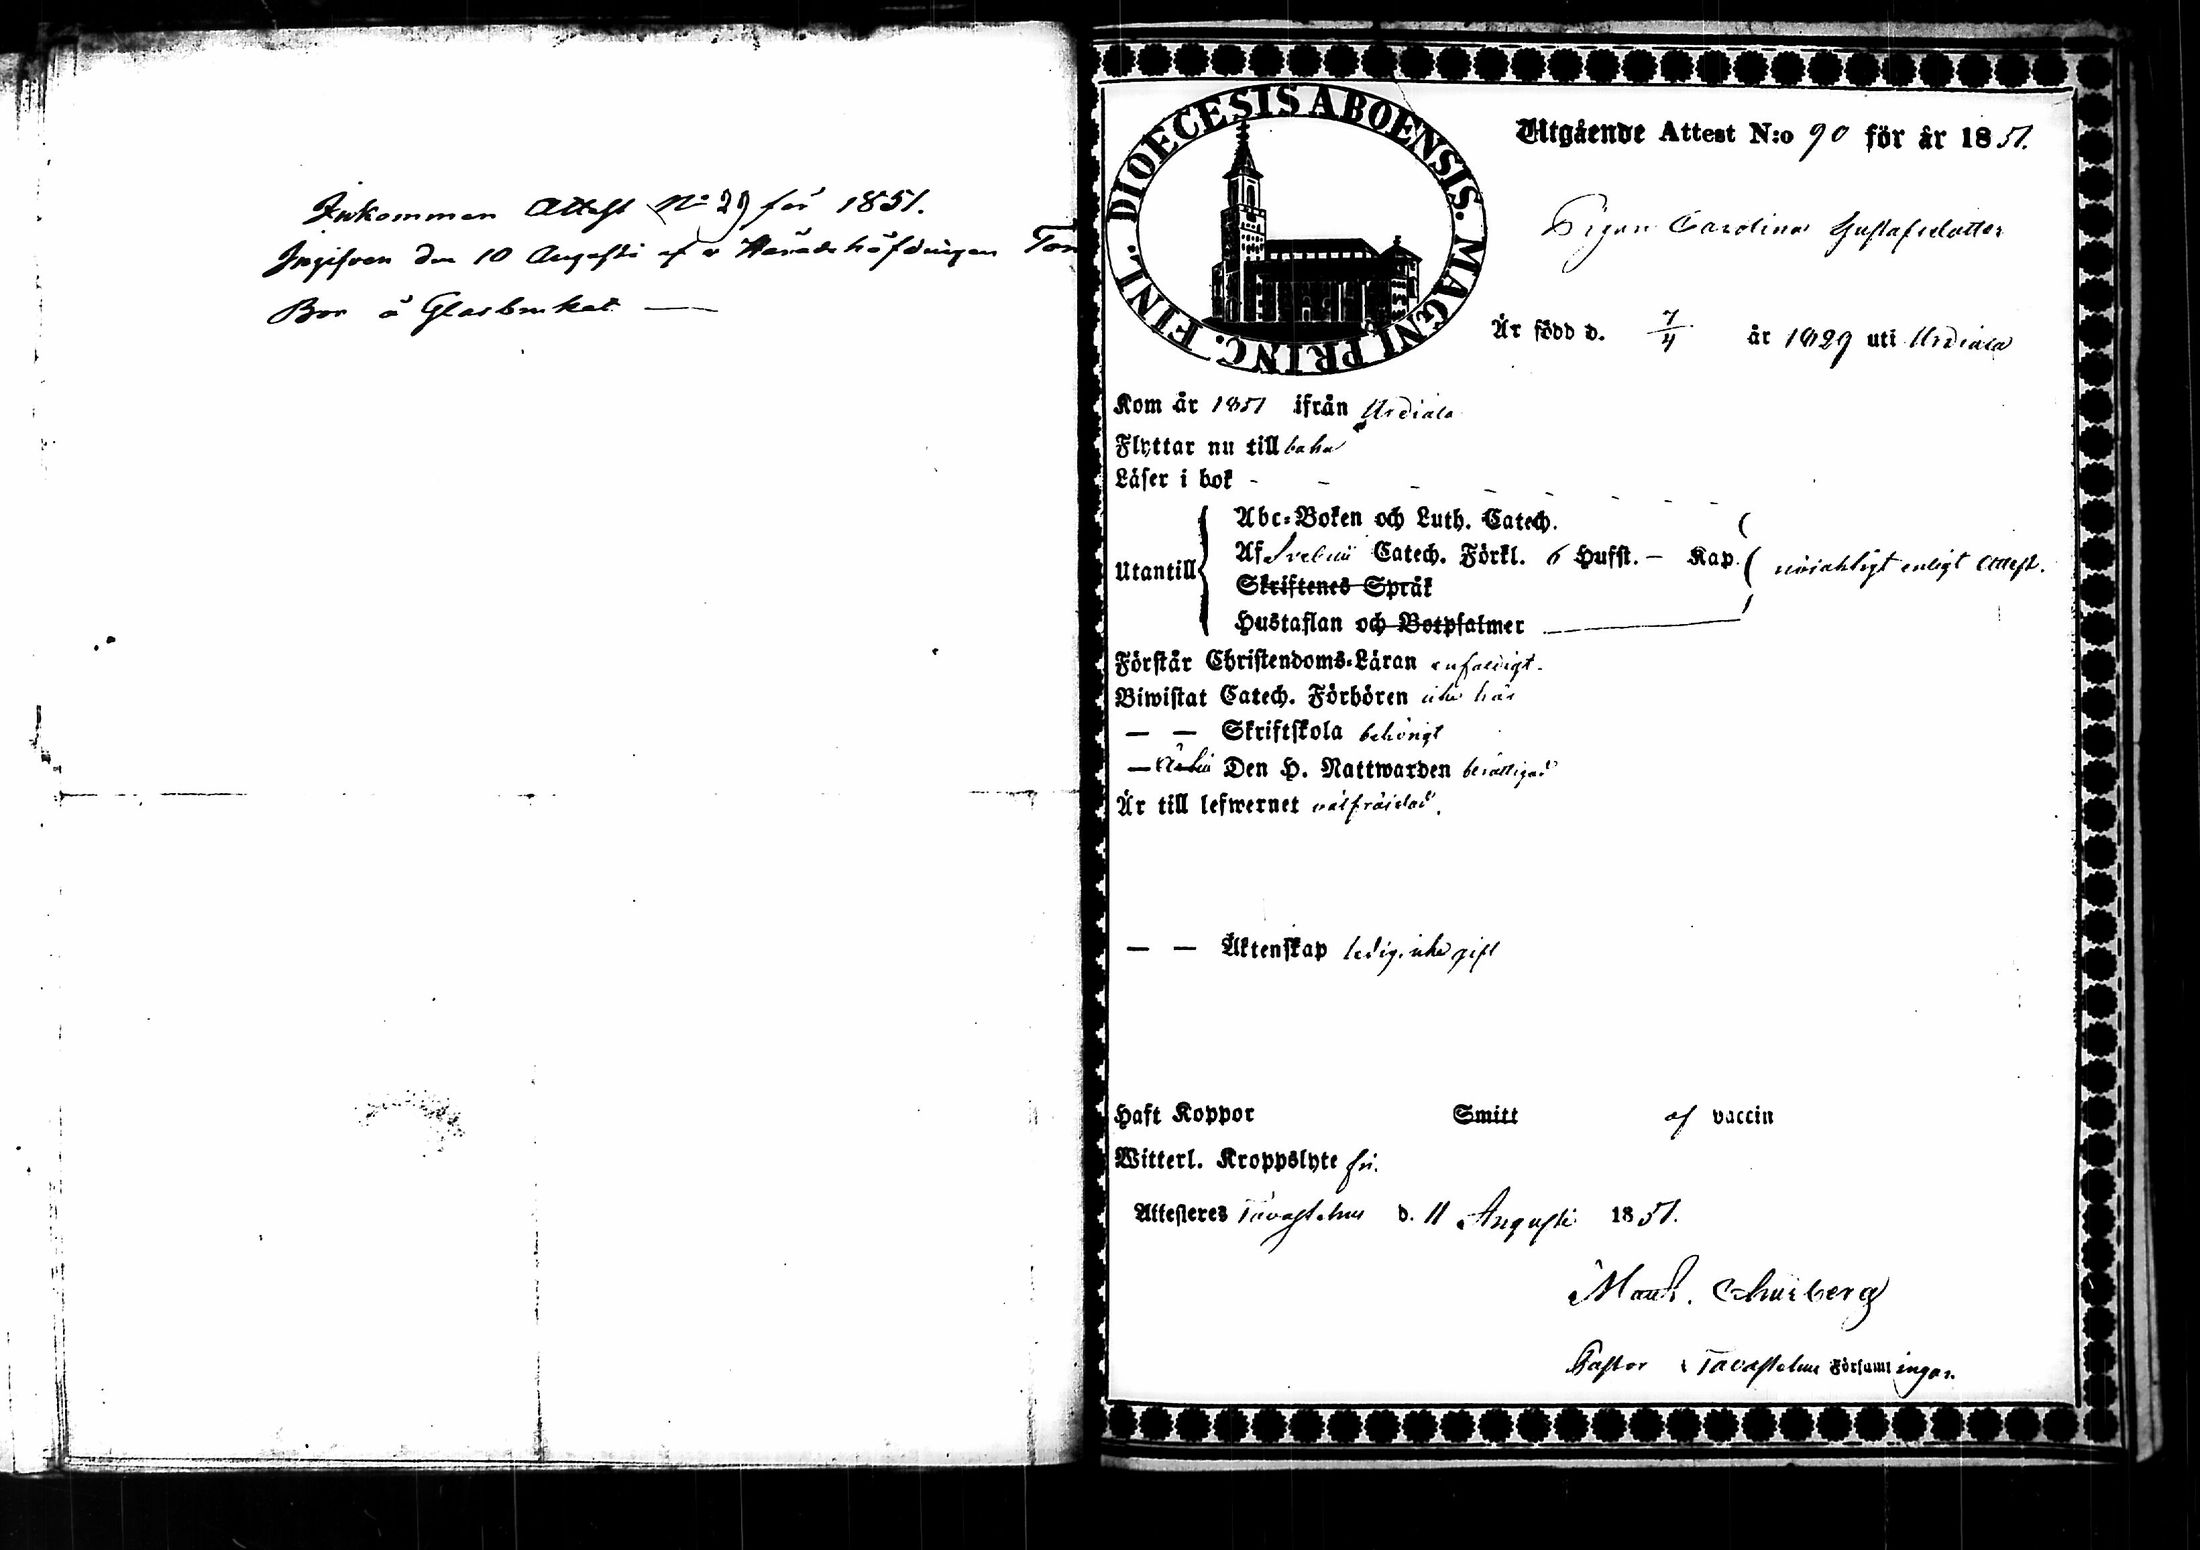 Inkommen Attest No 29 för 1851.
Ingifven den 10 Augusti af Häradshöfdingen
Bor å Glasbruket
DIOECESIS ABOENSIS. MAGNI PRINC. FINL.
Utgående Attest N:o 90 för år 1851.
Pigan Carolina Gustafsdotter
Är född d. 7/4 år 1829 uti Urdiala
Kom år 1851 ifrån Urdiala
Flyttar nu tillbaka
Läser i bok - - - - - - - -
Abc-Boken och Luth. Catech.
Utantill Af Svebilii Catech. Förkl. 6 Hufst. — Kap. enligt Attest.
Skriftenes Språk
Hustaflan och Botpsalmer
Förstår Christendoms-Läran enfaldigt.
Biwistat Catech. Förhören icke här
— — Skriftskola behörigt
— Är till Den H. Nattwarden berättigad
Är till lefwernet välfräjdad.
— — Äktenskap ledig, icke gift
Haft Koppor Smitt af vaccin
Witterl. Kroppslyte fri.
Attesteres Tavastehus d. 11 Augusti 1851.
Churberg
Pastor i Tavastehus Församlingar.